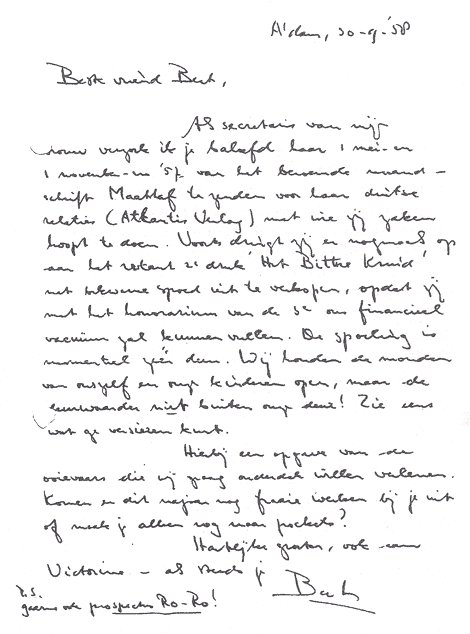 A'dam, 30-9-'58
Beste vriend Bert,
Als secretaris van mijn
vrouw verzoek ik je beleefd haar 1 mei- en
1 november- '57 van het beroemde maand-
schrift Maatstaf te zenden voor haar duitse
relaties (Atlantis Verlag) met wie zij zaken
hoopt te doen. Voorts dringt zij er nogmaals op
aan het restant 2e druk 'Het Bittere Kruid',
met bekwame spoed uit te verkopen, opdat zij
met het honorarium van de 3e ons financieel
vacuum zal kunnen vullen. De spoeling is
momenteel zéér dun. Wij houden de monden
van onszelf en onze kinderen open, maar de
leeuwaarder niet buiten onze deur! Zie eens
wat ge versieren kunt.
Hierbij een opgave van de
ooievaars die wij gaag onderdak willen verlenen.
Komen er dit najaar nog fraaie werken bij je uit
of maak je alleen nog maar pockets?
Hartelijke groeten, ook aan
Victorine – als steeds je
Bert
P.S.
gaarne ook prospectus Ro-Ro!